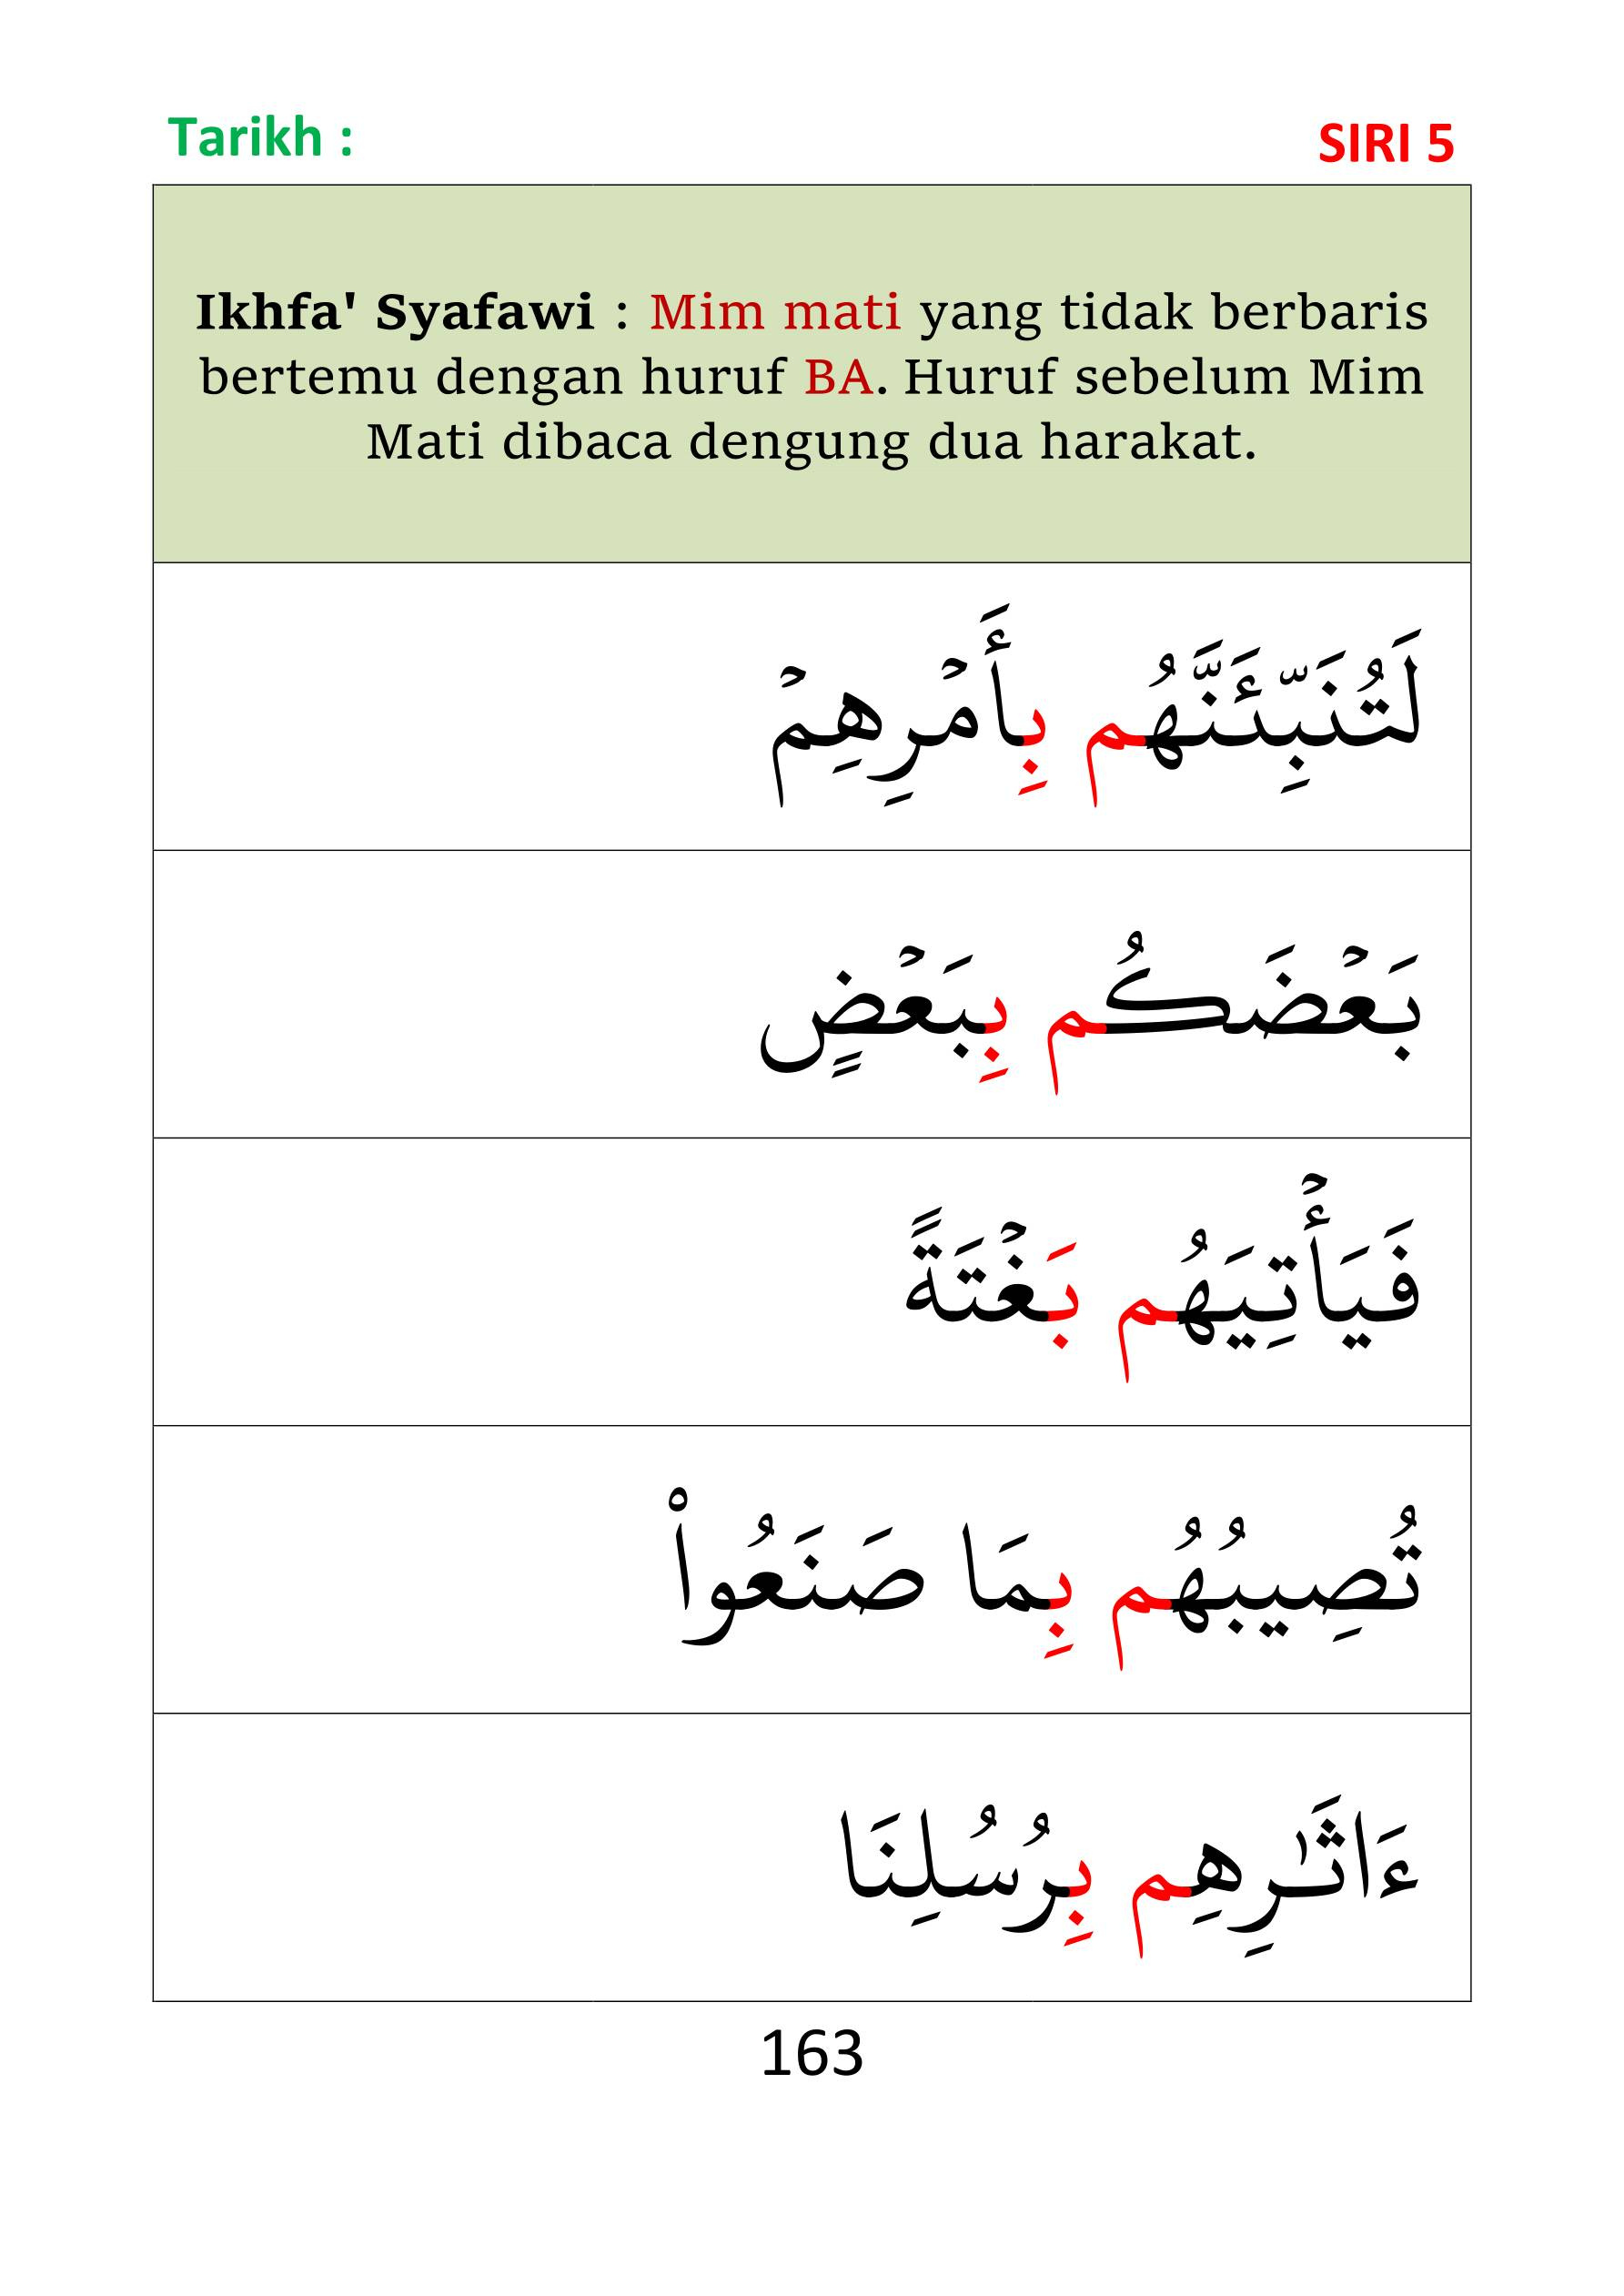 Tarikh :
SIRI 5
Ikhfa' Syafawi : Mim mati yang tidak berbaris
bertemu dengan huruf BA. Huruf sebelum Mim
Mati dibaca dengung dua harakat.
لَتُنَبِّئَنَّهُم بِأَمۡرِهِمۡ
بَعۡضَكُم بِبَعۡضٍ
فَيَأۡتِيَهُم بَغۡتَةً
تُصِيبُهُم بِمَا صَنَعُواْ
ءَاثَٰرِهِم بِرُسُلِنَا
163